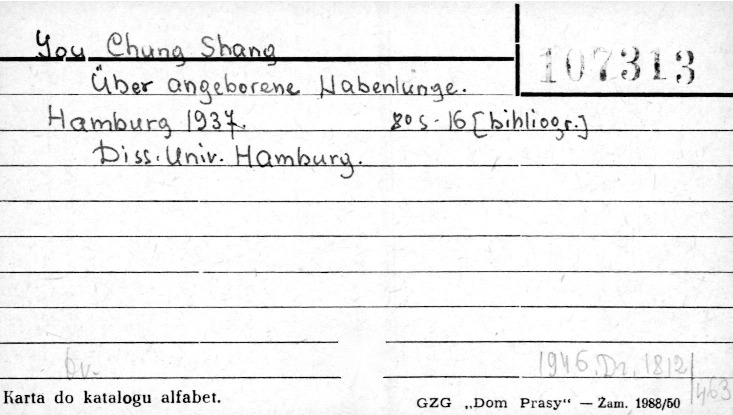 You Chung Shang
107313
Über angeborene Wabenlunge.
Hamburg 1937. 8° s. 16 [bibliogr.]
Diss. Univ. Hamburg.
bv.
1946. Dr. 1812/
463
Karta do katalogu alfabet.
GZG „Dom Prasy“ — Żam. 1988/50